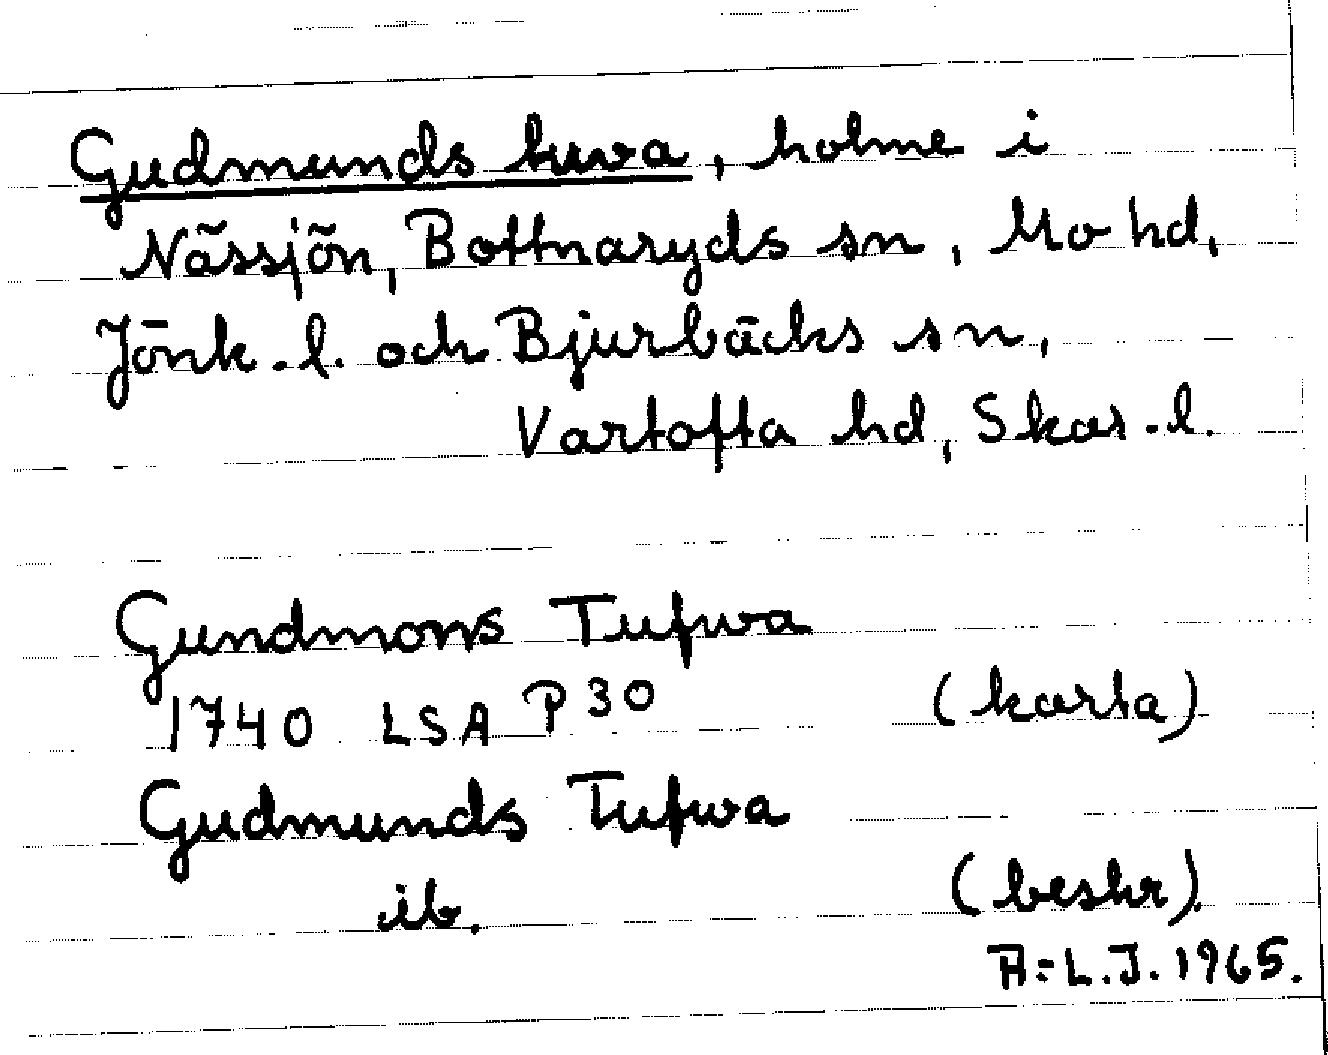 Gudmunds tuva, holme i
Nässjön, Bottnaryds sn, Mo hd,
Jönk. l. och Bjurbäcks sn,
Vartofta hd, Skar. l.
Gundmons Tufwa
1740 LSA P30 (karta)
Gudmunds Tufwa
ib. (beskr).
A:L.J. 1965.